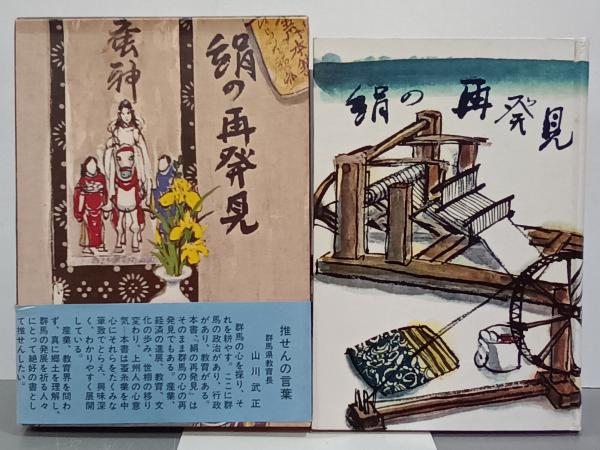 蚕神
絹の再発見
推せんの言葉
群馬県教育長
山川武正
群馬の心を探り、そ
れを耕やす。ここに群
馬の政治があり、行政
があり、教育がある。
本書「絹の再発見」は
そのまま群馬の心の再
発見でもある。産業、
経済の進展、教育、文
化の歩み、世相の移り
変わり、上州人の心意
気、本書は蚕糸業を中
心にそれらをみな
筆致でとらえ、興味深
く、わかりやすく展開
している。
産業、教育界を問わ
ず、真に郷土を理解し、
群馬の発展を祈る人々
にとって絶好の書とし
て推せんしたい。
絹の再発見